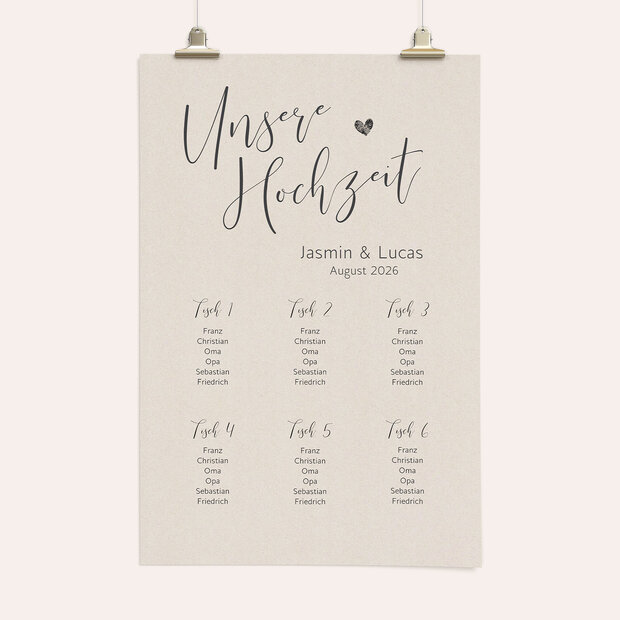 Unsere
Hochzeit
Jasmin & Lucas
August 2026
Tisch 1
Franz
Christian
Oma
Opa
Sebastian
Friedrich
Tisch 2
Franz
Christian
Oma
Opa
Sebastian
Friedrich
Tisch 3
Franz
Christian
Oma
Opa
Sebastian
Friedrich
Tisch 4
Franz
Christian
Oma
Opa
Sebastian
Friedrich
Tisch 5
Franz
Christian
Oma
Opa
Sebastian
Friedrich
Tisch 6
Franz
Christian
Oma
Opa
Sebastian
Friedrich